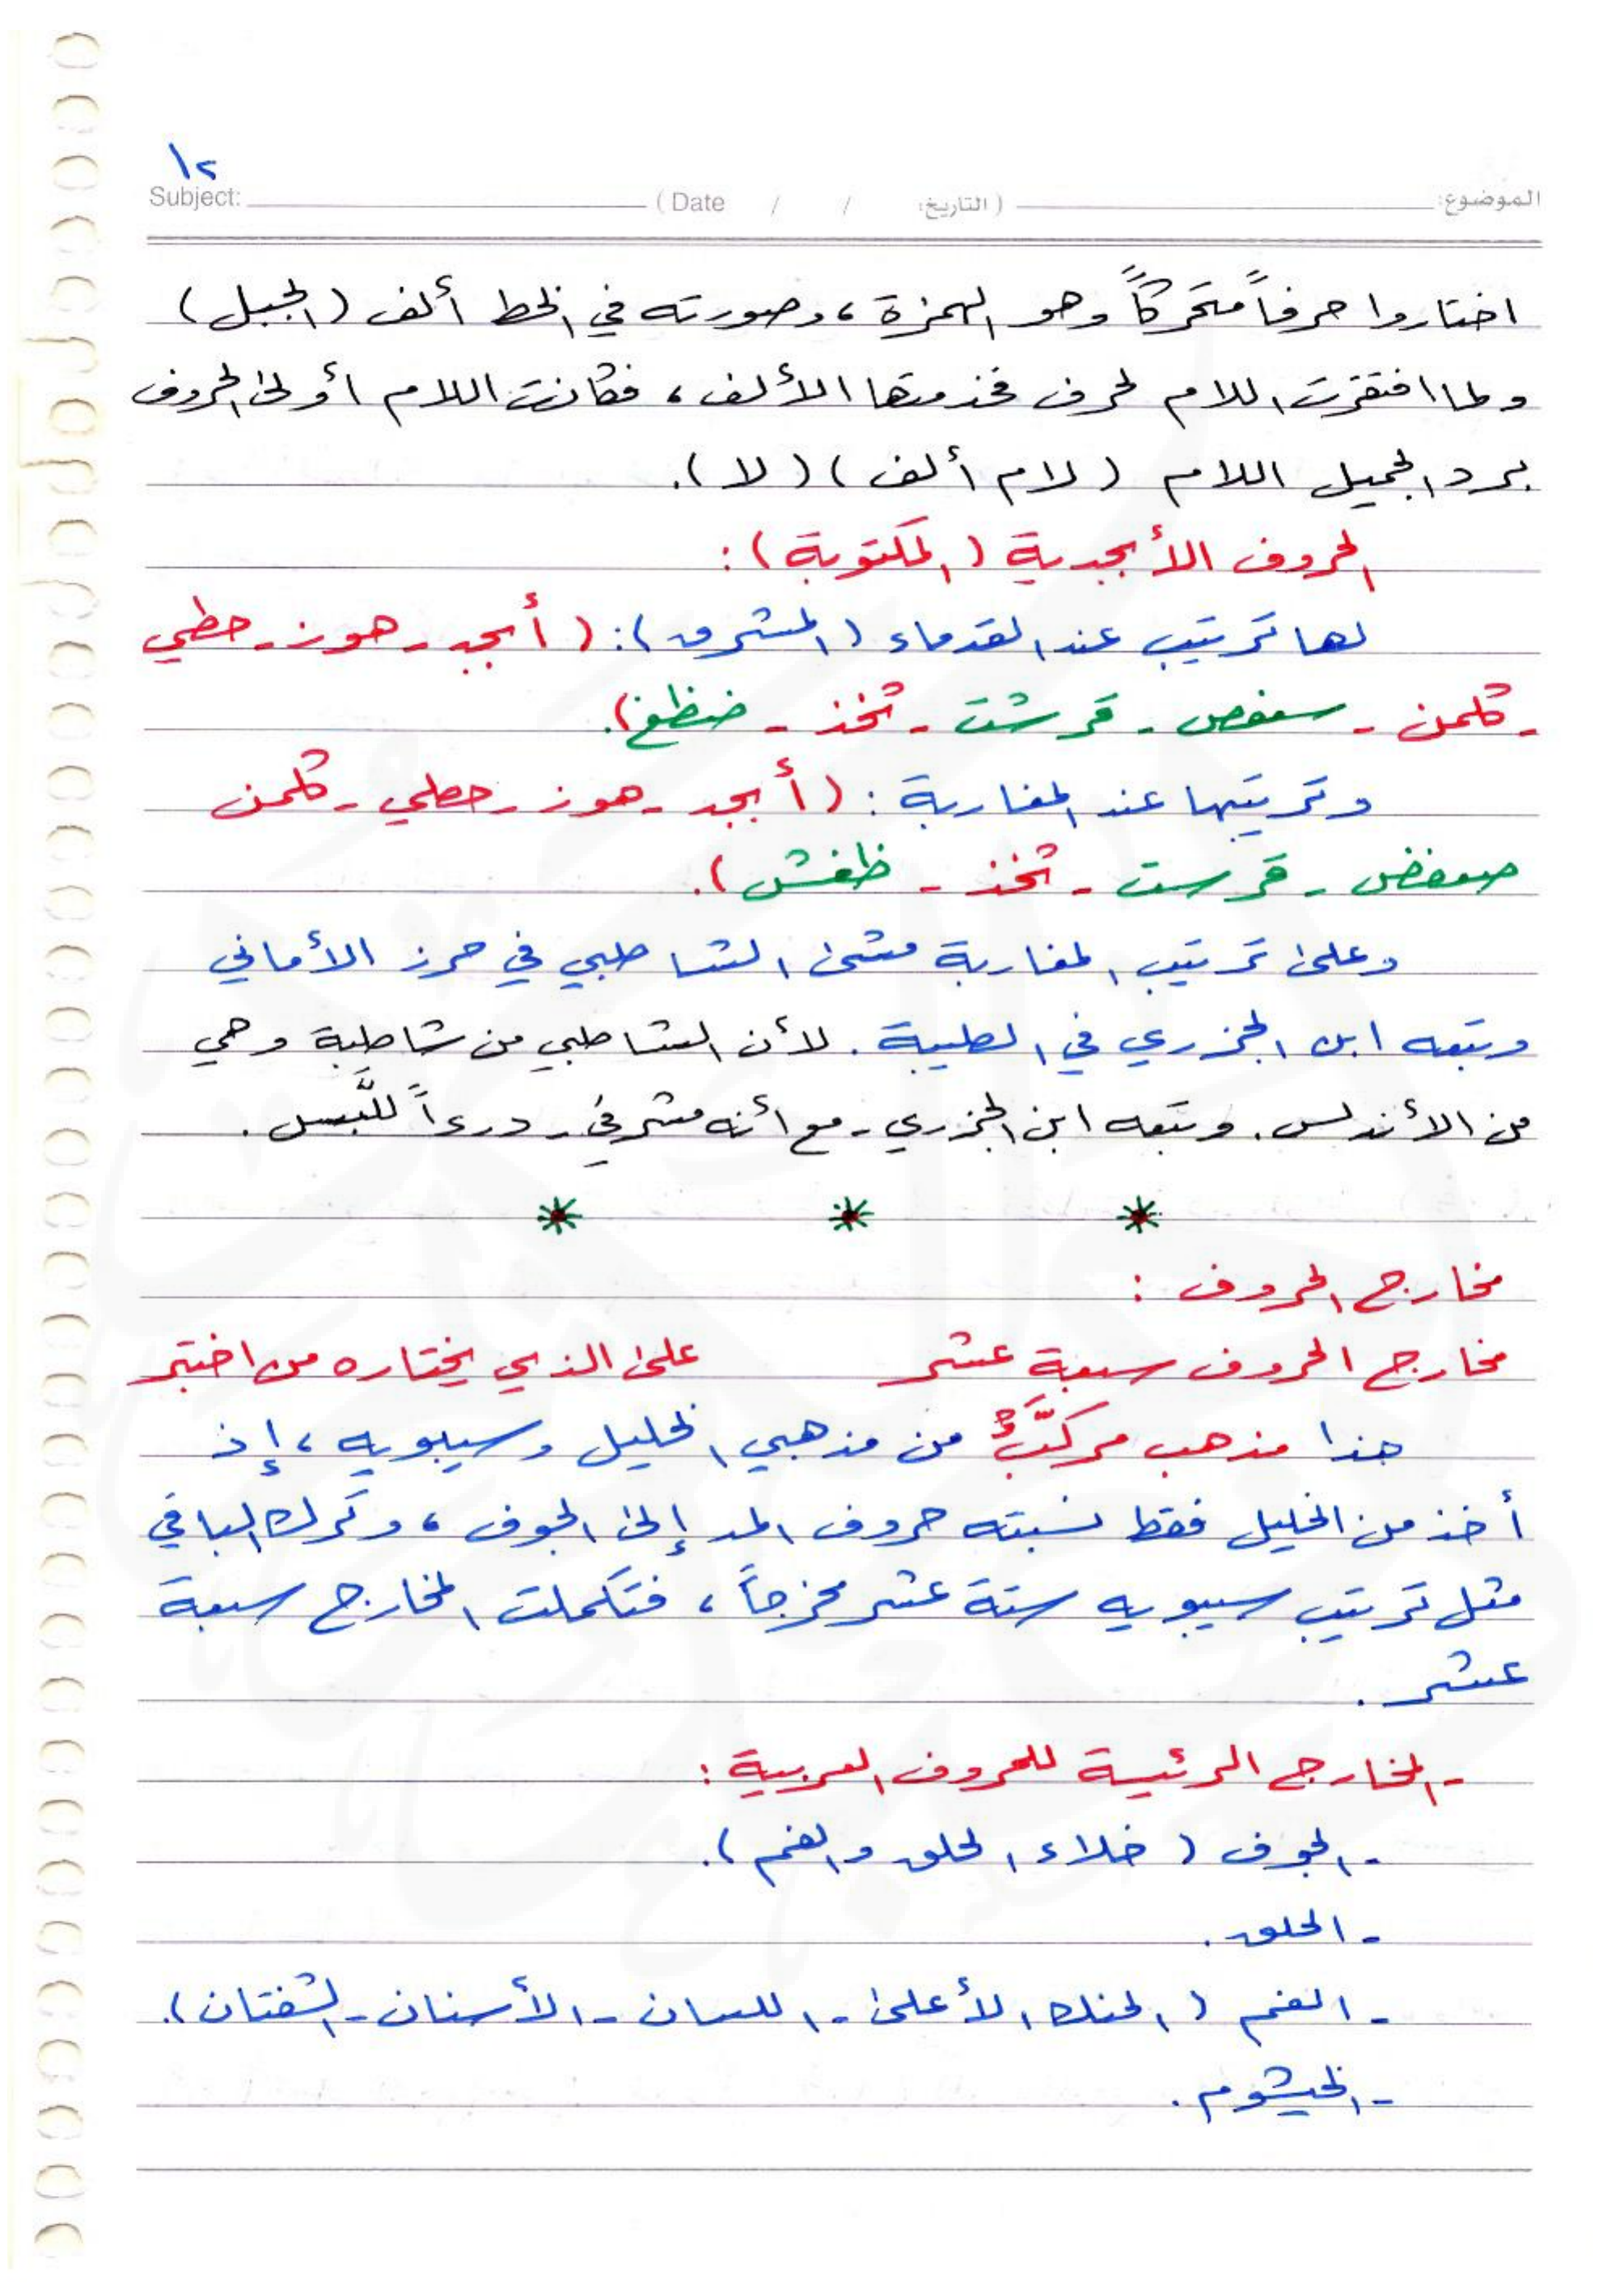 ١٢
Subject: (Date / / التاريخ:) الموضوع:
اختاروا حرفاً متحركاً وهو الهمزة، وصورته في الخط ألف (الجبل)
ولما افتقرت اللام لحرف فخدمتها الألف، فكانت اللام أولى الحروف
برد الجميل اللام (لام ألف) (لا).
الحروف الأبجدية (المكتوبة):
لها ترتيب عند القدماء (المشرق): (أبجد - هوز - حطي
- كلمن - سعفص - قرشت - ثخذ - ضظغ).
وترتيبها عند المغاربة: (أبجد - هوز - حطي - كلمن
صعفض - قرست - ثخذ - ظغش).
وعلى ترتيب المغاربة مشى الشاطبي في حرز الأماني
وتبعه ابن الجزري في الطيبة. لأن الشاطبي من شاطبة وهي
من الأندلس. وتبعه ابن الجزري - مع أنه مشرقي - درءاً للَّبس.
* * *
مخارج الحروف:
مخارج الحروف سبعة عشر على الذي يختاره من اختبر
هذا مذهب مركَّبٌ من مذهبي الخليل وسيبويه، إذ
أخذ من الخليل فقط نسبته حروف المد إلى الجوف، وترك الباقي
مثل ترتيب سيبويه ستة عشر مخرجاً، فتكملت المخارج سبعة
عشر.
- المخارج الرئيسة للحروف العربية:
- الجوف (خلاء الحلق والفم).
- الحلق.
- الفم (الحنك الأعلى - اللسان - الأسنان - الشفتان).
- الخيشوم.